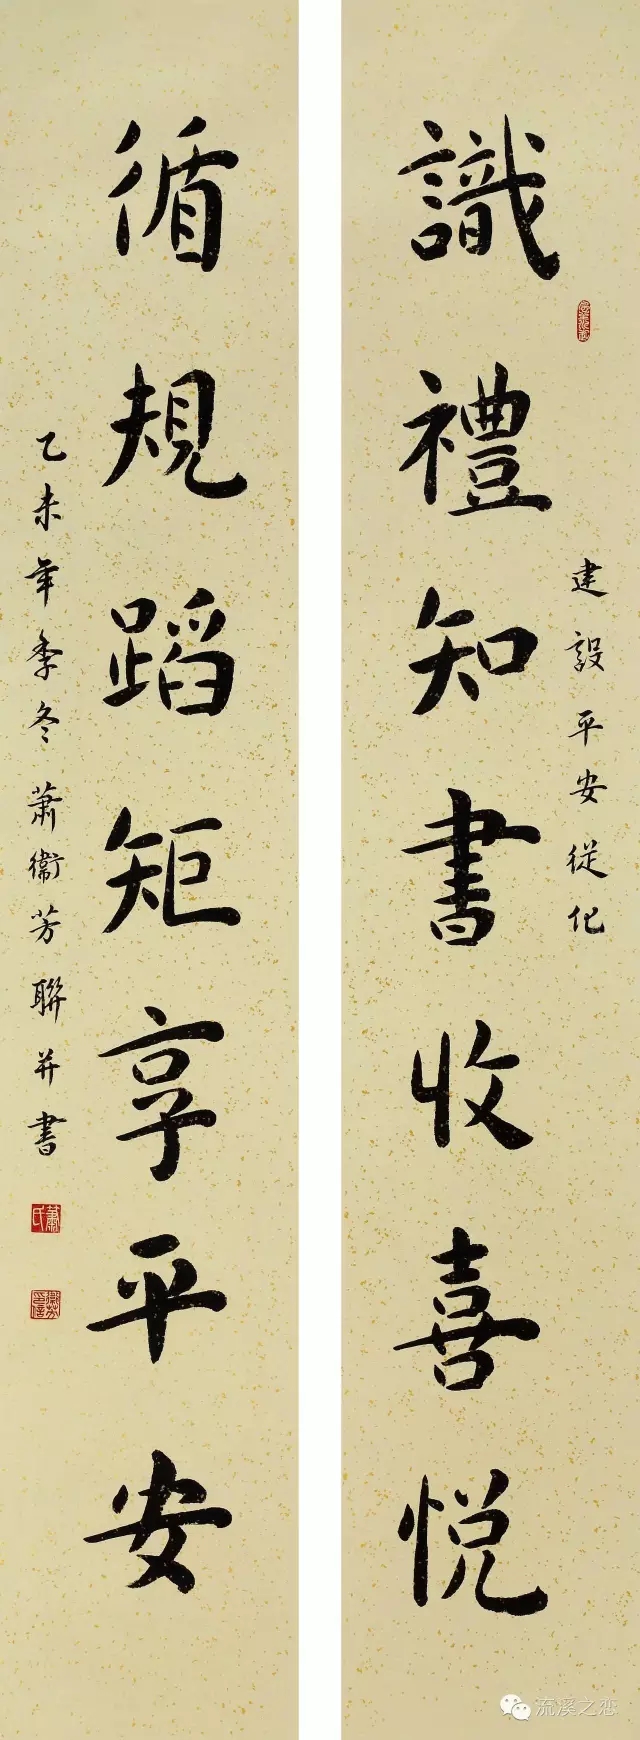 識禮知書收喜悅
建設平安從化
循規蹈矩享平安
乙未年季冬蕭衛芳聯并書
蕭氏
流溪之恋